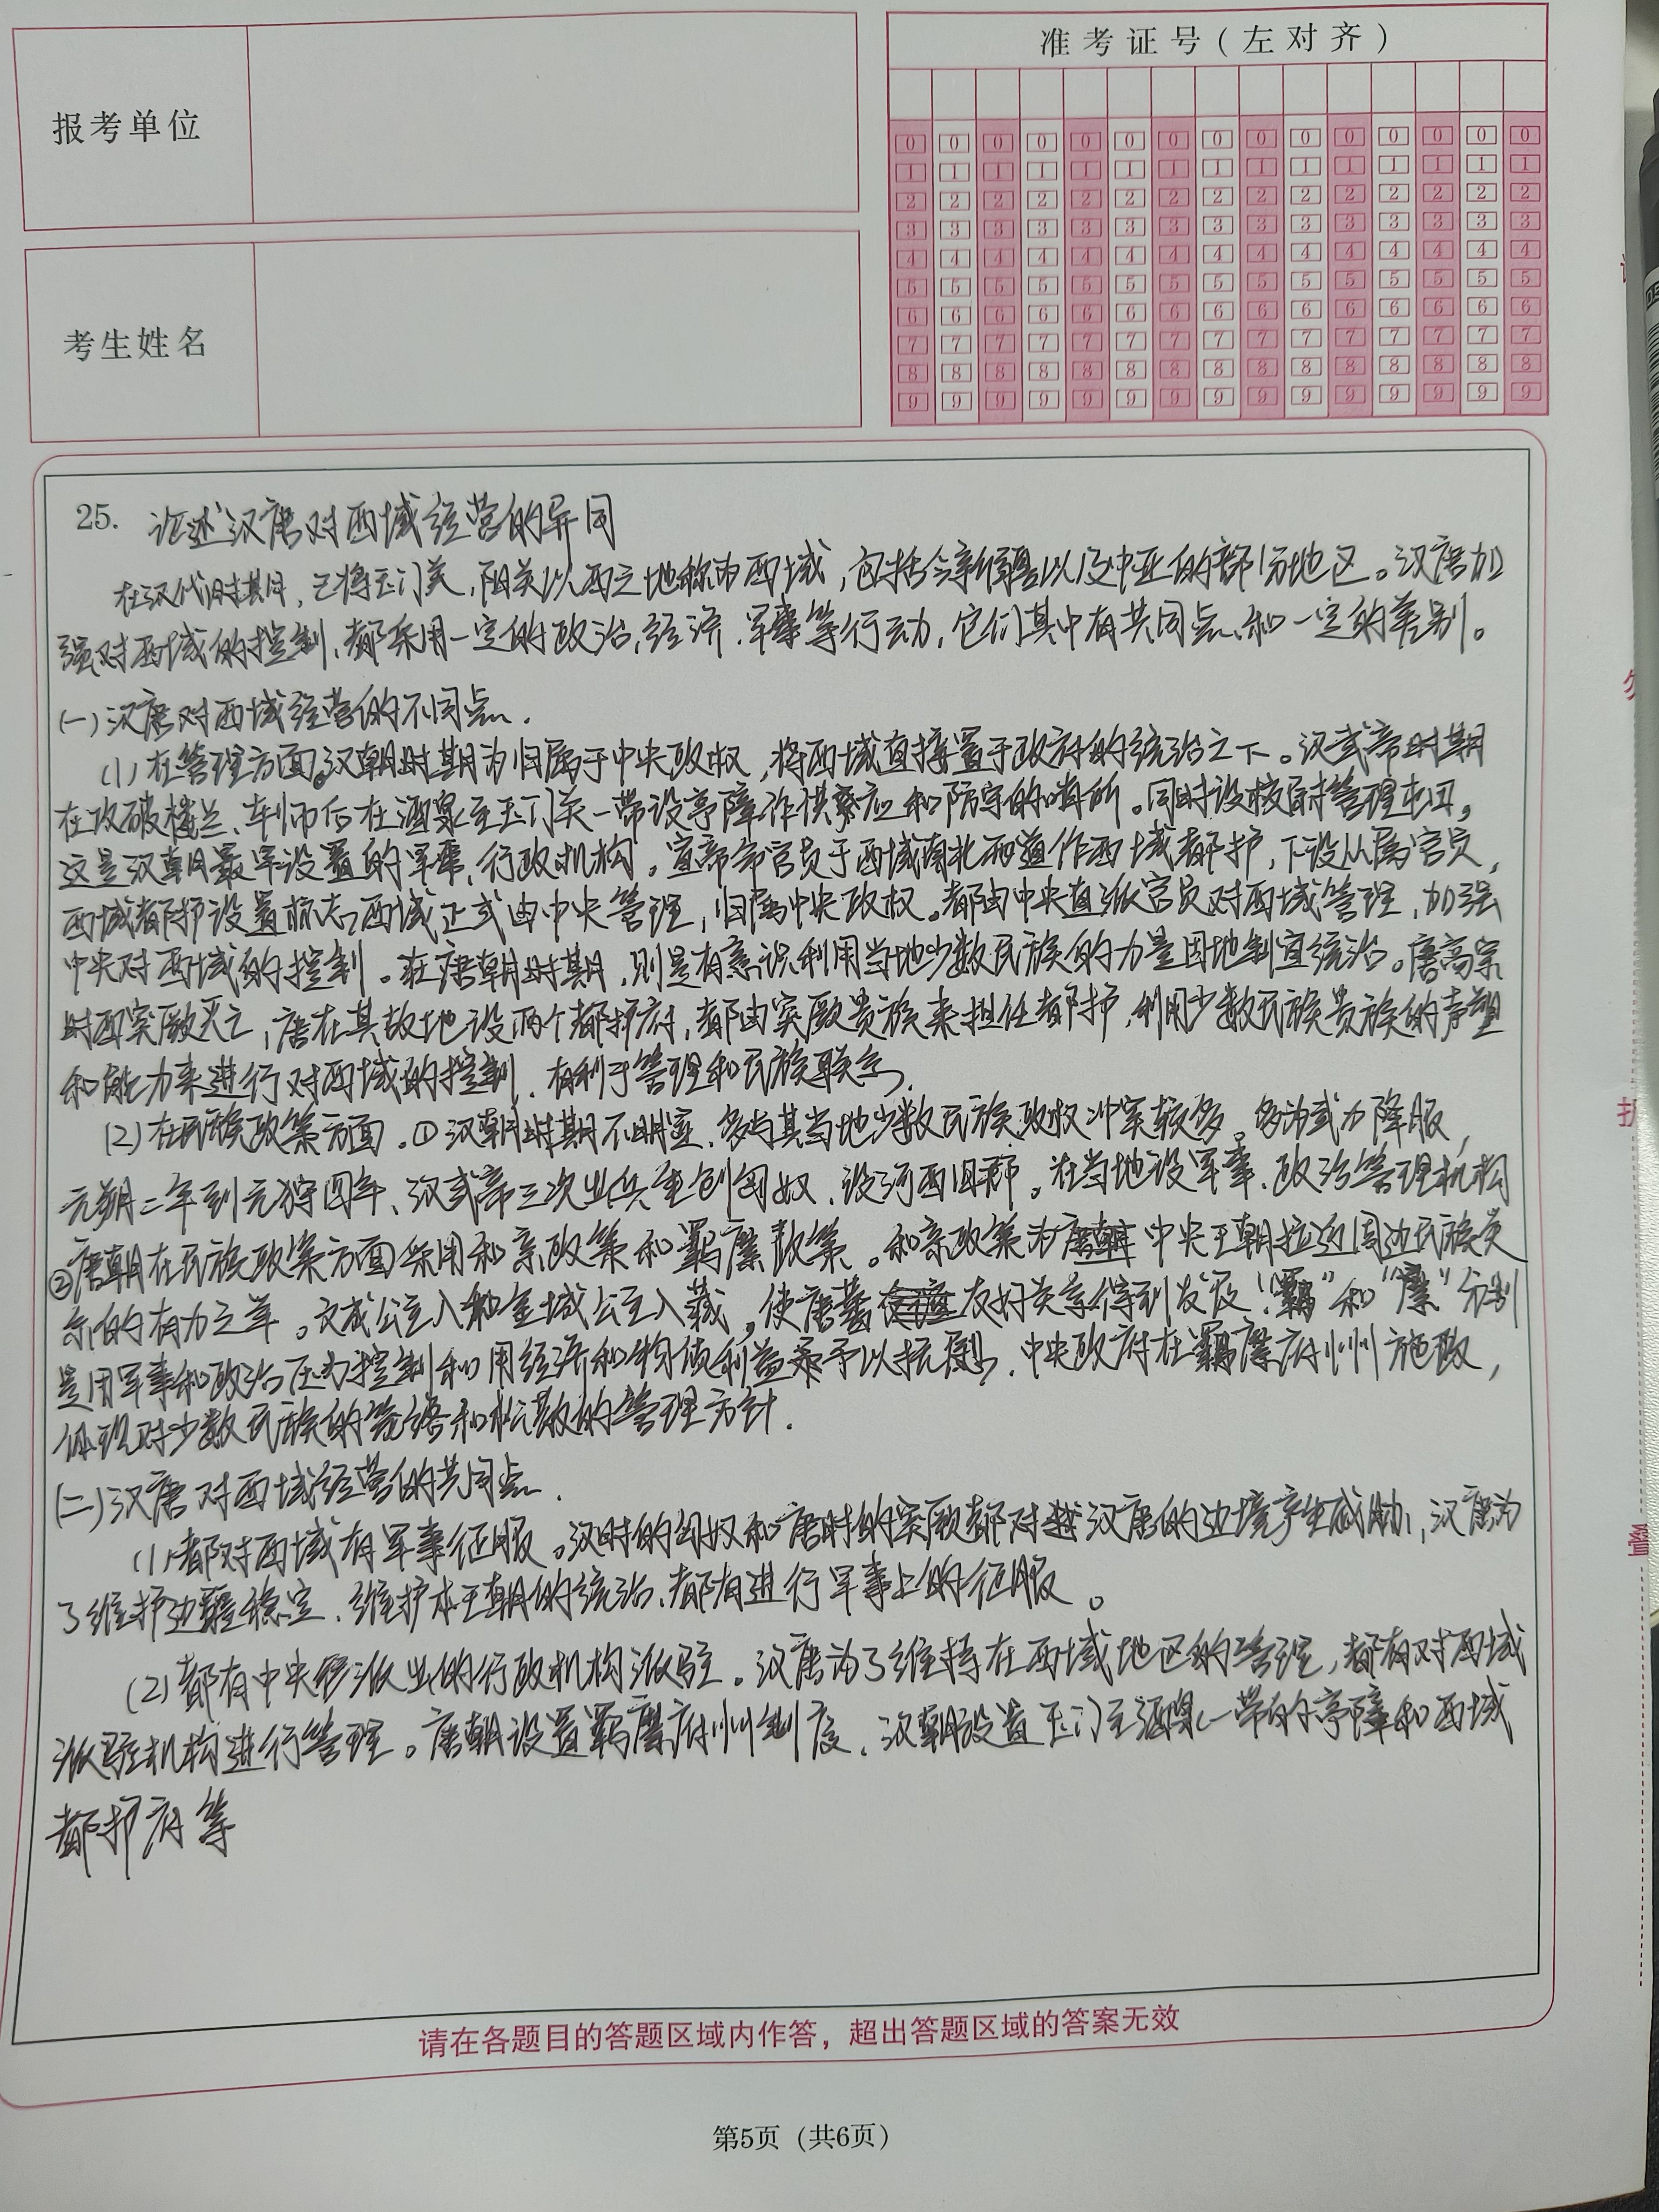 准考证号(左对齐)
报考单位
考生姓名
0 0 0 0 0 0 0 0 0 0 0 0 0 0 0
1 1 1 1 1 1 1 1 1 1 1 1 1 1 1
2 2 2 2 2 2 2 2 2 2 2 2 2 2 2
3 3 3 3 3 3 3 3 3 3 3 3 3 3 3
4 4 4 4 4 4 4 4 4 4 4 4 4 4 4
5 5 5 5 5 5 5 5 5 5 5 5 5 5 5
6 6 6 6 6 6 6 6 6 6 6 6 6 6 6
7 7 7 7 7 7 7 7 7 7 7 7 7 7 7
8 8 8 8 8 8 8 8 8 8 8 8 8 8 8
9 9 9 9 9 9 9 9 9 9 9 9 9 9 9
25. 论述汉唐对西域经营的异同
在汉代时期,已将玉门关,阳关以西之地称为西域,包括今新疆以及中亚的部分地区。汉唐加
强对西域的控制,都采用一定的政治,经济.军事等行动,它们其中有共同点和一定的差别。
(一)汉唐对西域经营的不同点.
(1)在管理方面。汉朝时期为归属于中央政权,将西域直接置于政府的统治之下。汉武帝时期
在攻破楼兰、车师后在酒泉至玉门关一带设亭障作供应和防守的哨所。同时设校尉管理屯田。
这是汉朝最早设置的军事,行政机构。宣帝命官员于西域南北两道作西域都护,下设从属官员,
西域都护设置标志西域正式由中央管理,归属中央政权。都由中央直派官员对西域管理,加强
中央对西域的控制。在唐朝时期,则是有意识利用当地少数民族的力量因地制宜统治。唐高宗
时西突厥灭亡,唐在其故地设两个都护府,都由突厥贵族来担任都护,利用少数民族贵族的声望
和能力来进行对西域的控制,有利于管理和民族联系.
(2)在民族政策方面.①汉朝时期不明显,多与其当地少数民族政权冲突较多。多为武力降服,
元朔二年到元狩四年、汉武帝三次出兵重创匈奴,设河西四郡。在当地设军事.政治管理机构
②唐朝在民族政策方面采用和亲政策和羁縻政策。和亲政策为中央王朝拉近周边民族关
系的有力之举。文成公主入和金城公主入藏,使唐蕃友好关系得到发展!"羁"和"縻"分别
是用军事和政治压力控制和用经济和物质利益来予以抚慰,中央政府在羁縻府州施政,
体现对少数民族的笼络和松散的管理方针.
(二)汉唐对西域经营的共同点.
(1)都对西域有军事征服。汉时的匈奴和唐时的突厥都对汉唐的边境产生威胁,汉唐为
了维护边疆稳定,维护本王朝的统治,都有进行军事上的征服。
(2)都有中央派出的行政机构派驻。汉唐为了维持在西域地区的管理,都有对西域
派驻机构进行管理。唐朝设置羁縻府州制度,汉朝设置玉门至酒泉一带的亭障和西域
都护府等
请在各题目的答题区域内作答,超出答题区域的答案无效
第5页(共6页)